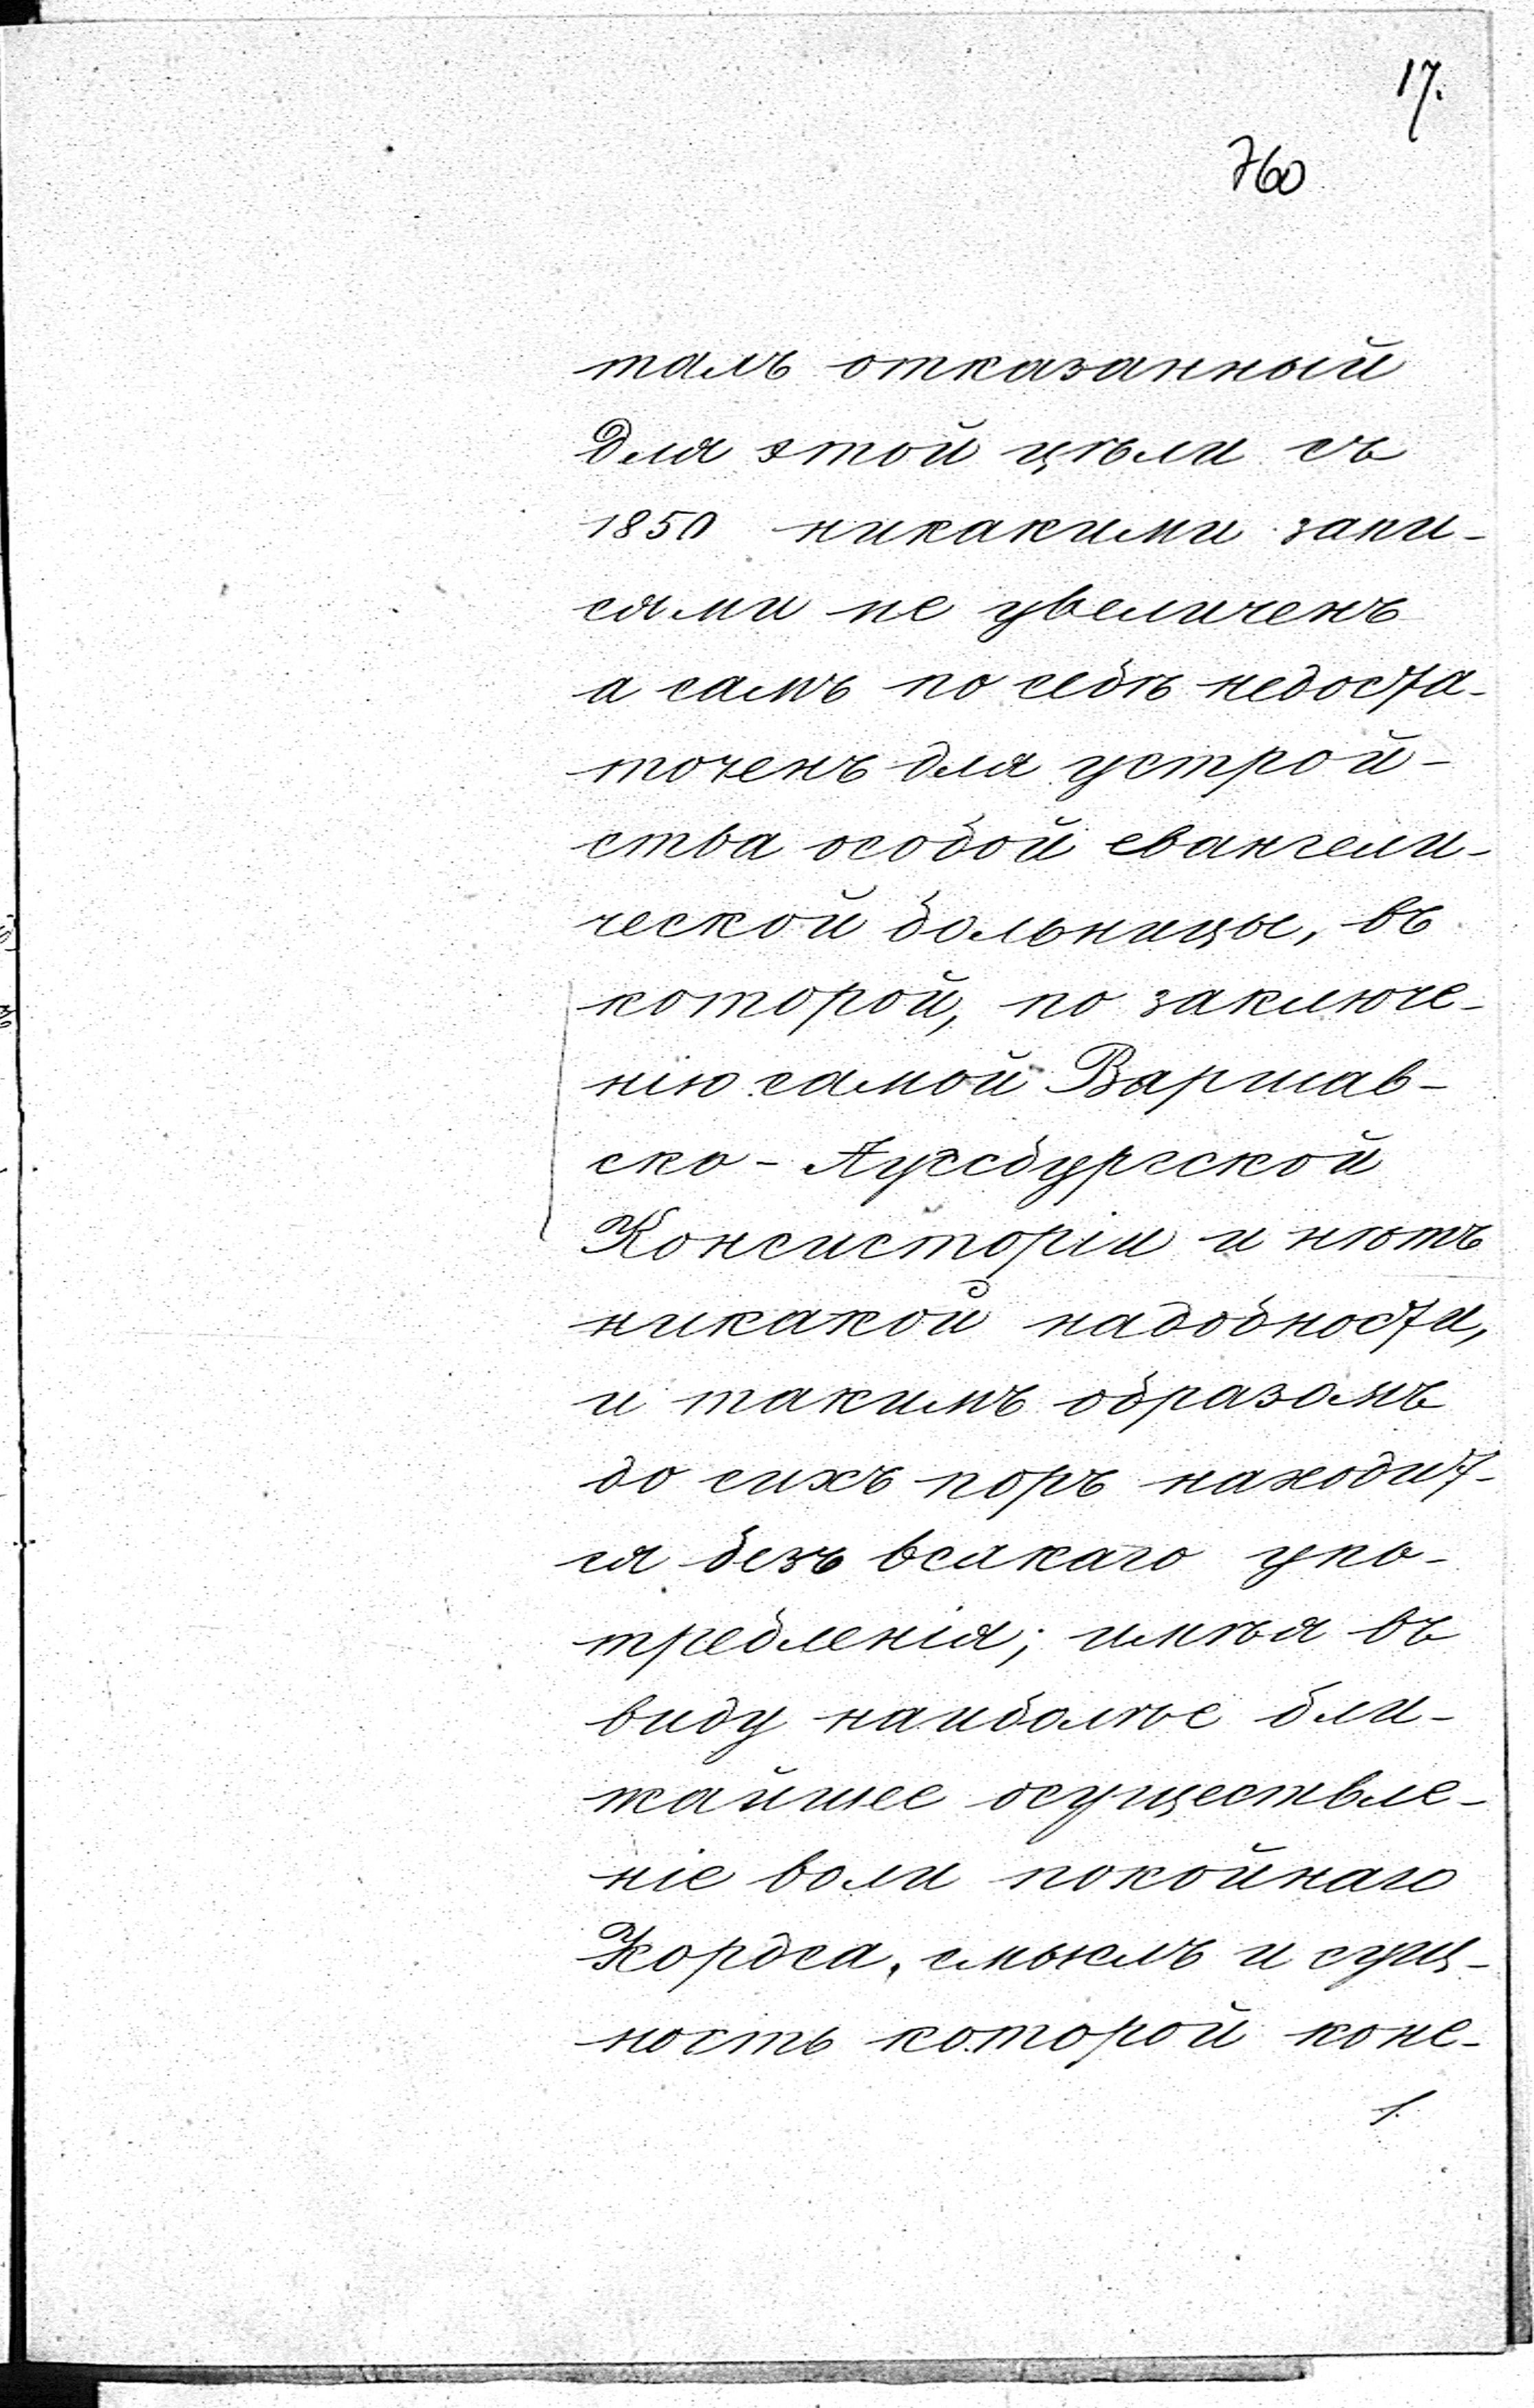 17.
760
талъ отказанный
для этой цѣли съ
1850 никакими запи-
сями не увеличенъ
а самъ по себѣ недоста-
точенъ для устрой-
ства особой евангели-
ческой больницы, въ
которой, по заключе-
нію самой Варшав-
ско-Аугсбургской
Консисторіи и нѣтъ
никакой надобности,
и такимъ образомъ
до сихъ поръ находит-
ся безъ всякаго упо-
требленія; имѣя въ
виду наиболѣе бли-
жайшее осуществле-
ніе воли покойнаго
Кордса, смыслъ и сущ-
ность которой коне-